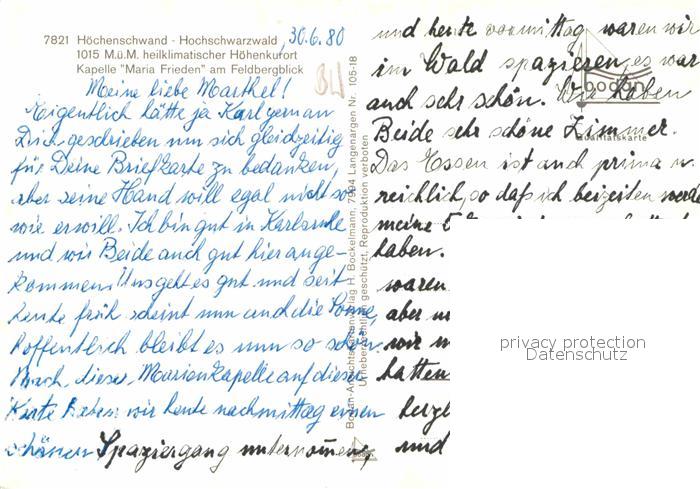 7821 Höchenschwand - Hochschwarzwald
1015 M.ü.M. heilklimatischer Höhenkurort
Kapelle "Maria Frieden" am Feldbergblick
30.6.80
Meine liebe Marthel!
Eigentlich hätte ja Karl gern an
Dich geschrieben um sich gleichzeitig
für Deine Briefkarte zu bedanken,
aber seine Hand will egal nicht so
wie er will. Ich bin gut in Karlsruhe
und wir Beide auch gut hier ange-
kommen. Uns geht es gut und seit
heute früh scheint nun auch die Sonne,
hoffentlich bleibt es nun so schön.
Nach dieser Marienkapelle auf dieser
Karte haben wir heute nachmittag einen
schönen Spaziergang unternommen,
Bodan-Ansichtskartenverlag H. Bockelmann, 7994 Langenargen Nr. 105-18
Urheberrechtlich geschützt, Reproduktion verboten
bodan
Qualitätskarte
und heute vormittag waren wir
im Wald spazieren, es war
auch sehr schön. Wir haben
Beide sehr schöne Zimmer.
Das Essen ist auch prima u.
reichlich, so daß ich beizeiten werde
meine
haben.
waren
aber
wir
hatten
herzl
und
privacy protection
Datenschutz